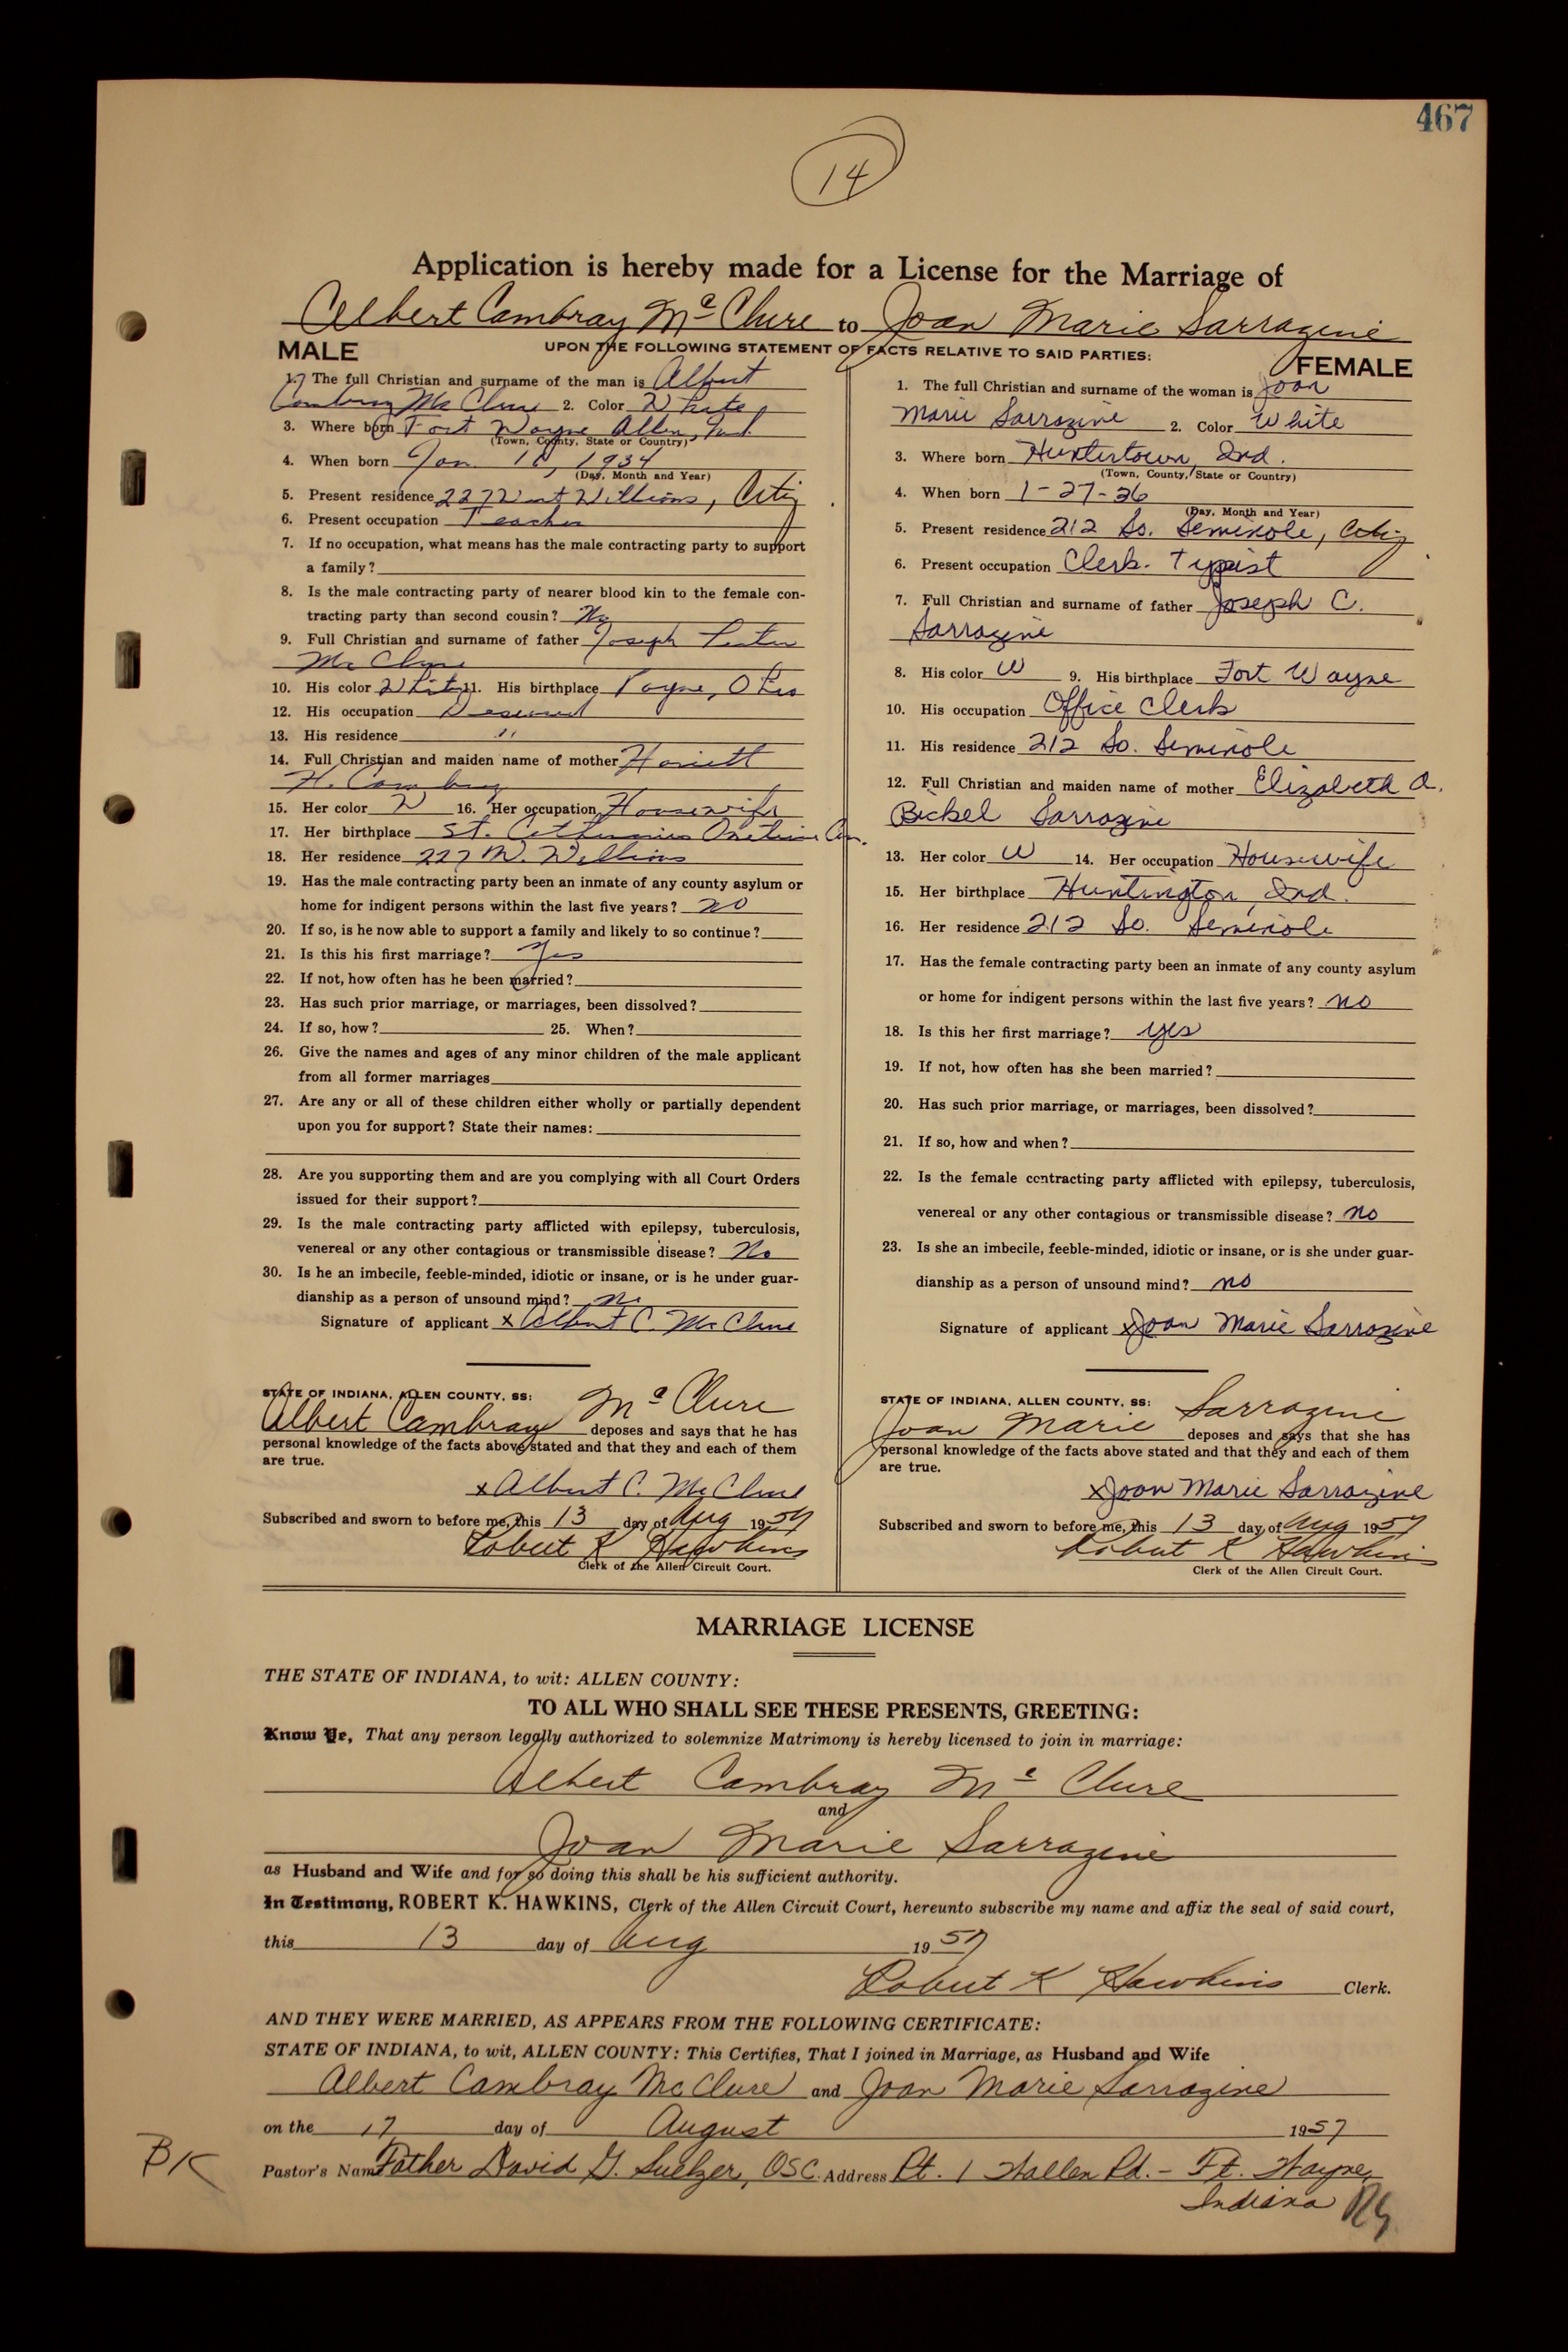 467
14
Application is hereby made for a License for the Marriage of
Albert Cambray Mc Clure to Joan Marie Sarrazine
UPON THE FOLLOWING STATEMENT OF FACTS RELATIVE TO SAID PARTIES:
MALE
1. The full Christian and surname of the man is Albert
Cambray Mc Clure 2. Color White
3. Where born Fort Wayne Allen, Ind.
(Town, County, State or Country)
4. When born Jan. 1934
(Day, Month and Year)
5. Present residence 227 West Williams, City
6. Present occupation Teacher
7. If no occupation, what means has the male contracting party to support
a family?
8. Is the male contracting party of nearer blood kin to the female con-
tracting party than second cousin? No
9. Full Christian and surname of father Joseph
Mc Clure
10. His color White 11. His birthplace Payne, Ohio
12. His occupation Deceased
13. His residence "
14. Full Christian and maiden name of mother Harriett
H. Cambray
15. Her color W 16. Her occupation Housewife
17. Her birthplace St. Catherines Can.
18. Her residence 227 W. Williams
19. Has the male contracting party been an inmate of any county asylum or
home for indigent persons within the last five years? no
20. If so, is he now able to support a family and likely to so continue?
21. Is this his first marriage? Yes
22. If not, how often has he been married?
23. Has such prior marriage, or marriages, been dissolved?
24. If so, how? 25. When?
26. Give the names and ages of any minor children of the male applicant
from all former marriages
27. Are any or all of these children either wholly or partially dependent
upon you for support? State their names:
28. Are you supporting them and are you complying with all Court Orders
issued for their support?
29. Is the male contracting party afflicted with epilepsy, tuberculosis,
venereal or any other contagious or transmissible disease? No
30. Is he an imbecile, feeble-minded, idiotic or insane, or is he under guar-
dianship as a person of unsound mind? no
Signature of applicant x Albert C. Mc Clure
STATE OF INDIANA, ALLEN COUNTY, SS: Mc Clure
Albert Cambray deposes and says that he has
personal knowledge of the facts above stated and that they and each of them
are true.
x Albert C. Mc Clure
Subscribed and sworn to before me, this 13 day of Aug 1957
Robert K Hawkins
Clerk of the Allen Circuit Court.
FEMALE
1. The full Christian and surname of the woman is Joan
Marie Sarrazine 2. Color White
3. Where born Huntertown, Ind.
(Town, County, State or Country)
4. When born 1-27-36
(Day, Month and Year)
5. Present residence 212 So. Seminole, City
6. Present occupation Clerk-Typist
7. Full Christian and surname of father Joseph C.
Sarrazine
8. His color W 9. His birthplace Fort Wayne
10. His occupation Office Clerk
11. His residence 212 So. Seminole
12. Full Christian and maiden name of mother Elizabeth A.
Bickel Sarrazine
13. Her color W 14. Her occupation Housewife
15. Her birthplace Huntington, Ind.
16. Her residence 212 So. Seminole
17. Has the female contracting party been an inmate of any county asylum
or home for indigent persons within the last five years? no
18. Is this her first marriage? yes
19. If not, how often has she been married?
20. Has such prior marriage, or marriages, been dissolved?
21. If so, how and when?
22. Is the female contracting party afflicted with epilepsy, tuberculosis,
venereal or any other contagious or transmissible disease? no
23. Is she an imbecile, feeble-minded, idiotic or insane, or is she under guar-
dianship as a person of unsound mind? no
Signature of applicant x Joan Marie Sarrazine
STATE OF INDIANA, ALLEN COUNTY, SS: Sarrazine
Joan Marie deposes and says that she has
personal knowledge of the facts above stated and that they and each of them
are true.
x Joan Marie Sarrazine
Subscribed and sworn to before me, this 13 day of Aug 1957
Robert K Hawkins
Clerk of the Allen Circuit Court.
MARRIAGE LICENSE
THE STATE OF INDIANA, to wit: ALLEN COUNTY:
TO ALL WHO SHALL SEE THESE PRESENTS, GREETING:
Know Ye, That any person legally authorized to solemnize Matrimony is hereby licensed to join in marriage:
Albert Cambray Mc Clure
and
Joan Marie Sarrazine
as Husband and Wife and for so doing this shall be his sufficient authority.
In Testimony, ROBERT K. HAWKINS, Clerk of the Allen Circuit Court, hereunto subscribe my name and affix the seal of said court,
this 13 day of Aug 1957
Robert K Hawkins Clerk.
AND THEY WERE MARRIED, AS APPEARS FROM THE FOLLOWING CERTIFICATE:
STATE OF INDIANA, to wit, ALLEN COUNTY: This Certifies, That I joined in Marriage, as Husband and Wife
Albert Cambray McClure and Joan Marie Sarrazine
on the 17 day of August 1957
BK
Pastor's Name Father David G. Suelzer, OSC. Address Rt. 1 Wallen Rd. - Ft. Wayne,
Indiana